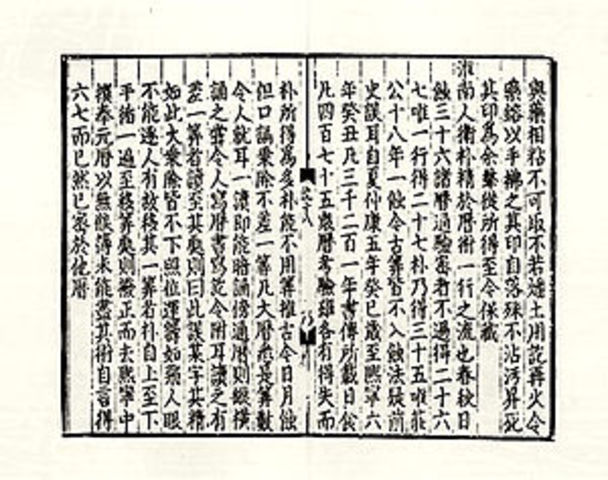 與藥相粘不可取不若燔土用訖再火令
藥鎔以手拂之其印自落殊不沾汚昇死
其印為余羣從所得至今保藏
淮南人衛朴精於曆術一行之流也春秋日
蝕三十六諸曆通驗密者不過得二十六
七唯一行得二十七朴乃得三十五唯莊
公十八年一蝕今古筭皆不入蝕法疑前
史誤耳自夏仲康五年癸巳歲至熙寧六
年癸丑凡三千二百一年書傳所載日食
凡四百七十五衆曆考驗雖各有得失而
朴所得為多朴能不用筭推古今日月蝕
但口誦乗除不差一筭凡大曆悉是筭數
令人就耳一讀即能暗誦傍通曆則縱橫
誦之嘗令人寫曆書寫訖令附耳讀之有
差一筭者讀至其處則曰此誤某字其精
如此大乗除皆不下照位運籌如飛人眼
不能逐人有故移其一筭者朴自上至下
手循一遍至移筭處則撥正而去熙寧中
撰奉元曆以無候簿未能盡其術自言得
六七而已然已密於他曆